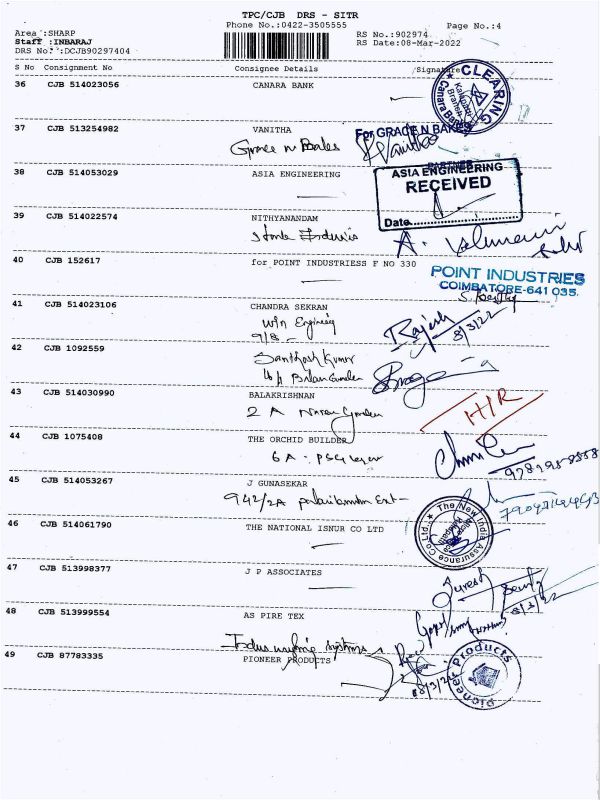 TPC/CJB DRS - SITR
Phone No.:0422-3505555
Page No.:4
Area :SHARP
Staff :INBARAJ
DRS No.:DCJB90297404
RS No.:902974
RS Date:08-Mar-2022
S No Consignment No Consignee Details Signature
36 CJB 514023056 CANARA BANK
CLEARING
Canara Bank
37 CJB 513254982 VANITHA
Grace n Bakes
For GRACE N BAKES
Vanitha
PARTNER
38 CJB 514053029 ASIA ENGINEERING
ASIA ENGINEERING
RECEIVED
Date
39 CJB 514022574 NITHYANANDAM
A.
40 CJB 152617 for POINT INDUSTRIESS F NO 330
POINT INDUSTRIES
COIMBATORE-641 035.
41 CJB 514023106 CHANDRA SEKRAN
win Engineering
9/8 -
Rajesh
8/3/22
42 CJB 1092559
Santhosh Kumar
43 CJB 514030990 BALAKRISHNAN
2 A
H/R
44 CJB 1075408 THE ORCHID BUILDER
6A -
45 CJB 514053267 J GUNASEKAR
942/2A
46 CJB 514061790 THE NATIONAL ISNUR CO LTD
The New India Assurance Co Ltd.,
47 CJB 513998377 J P ASSOCIATES
Suresh
48 CJB 513999554 AS PIRE TEX
systems
49 CJB 87783335 PIONEER PRODUCTS
08/3/22
Pioneer Products